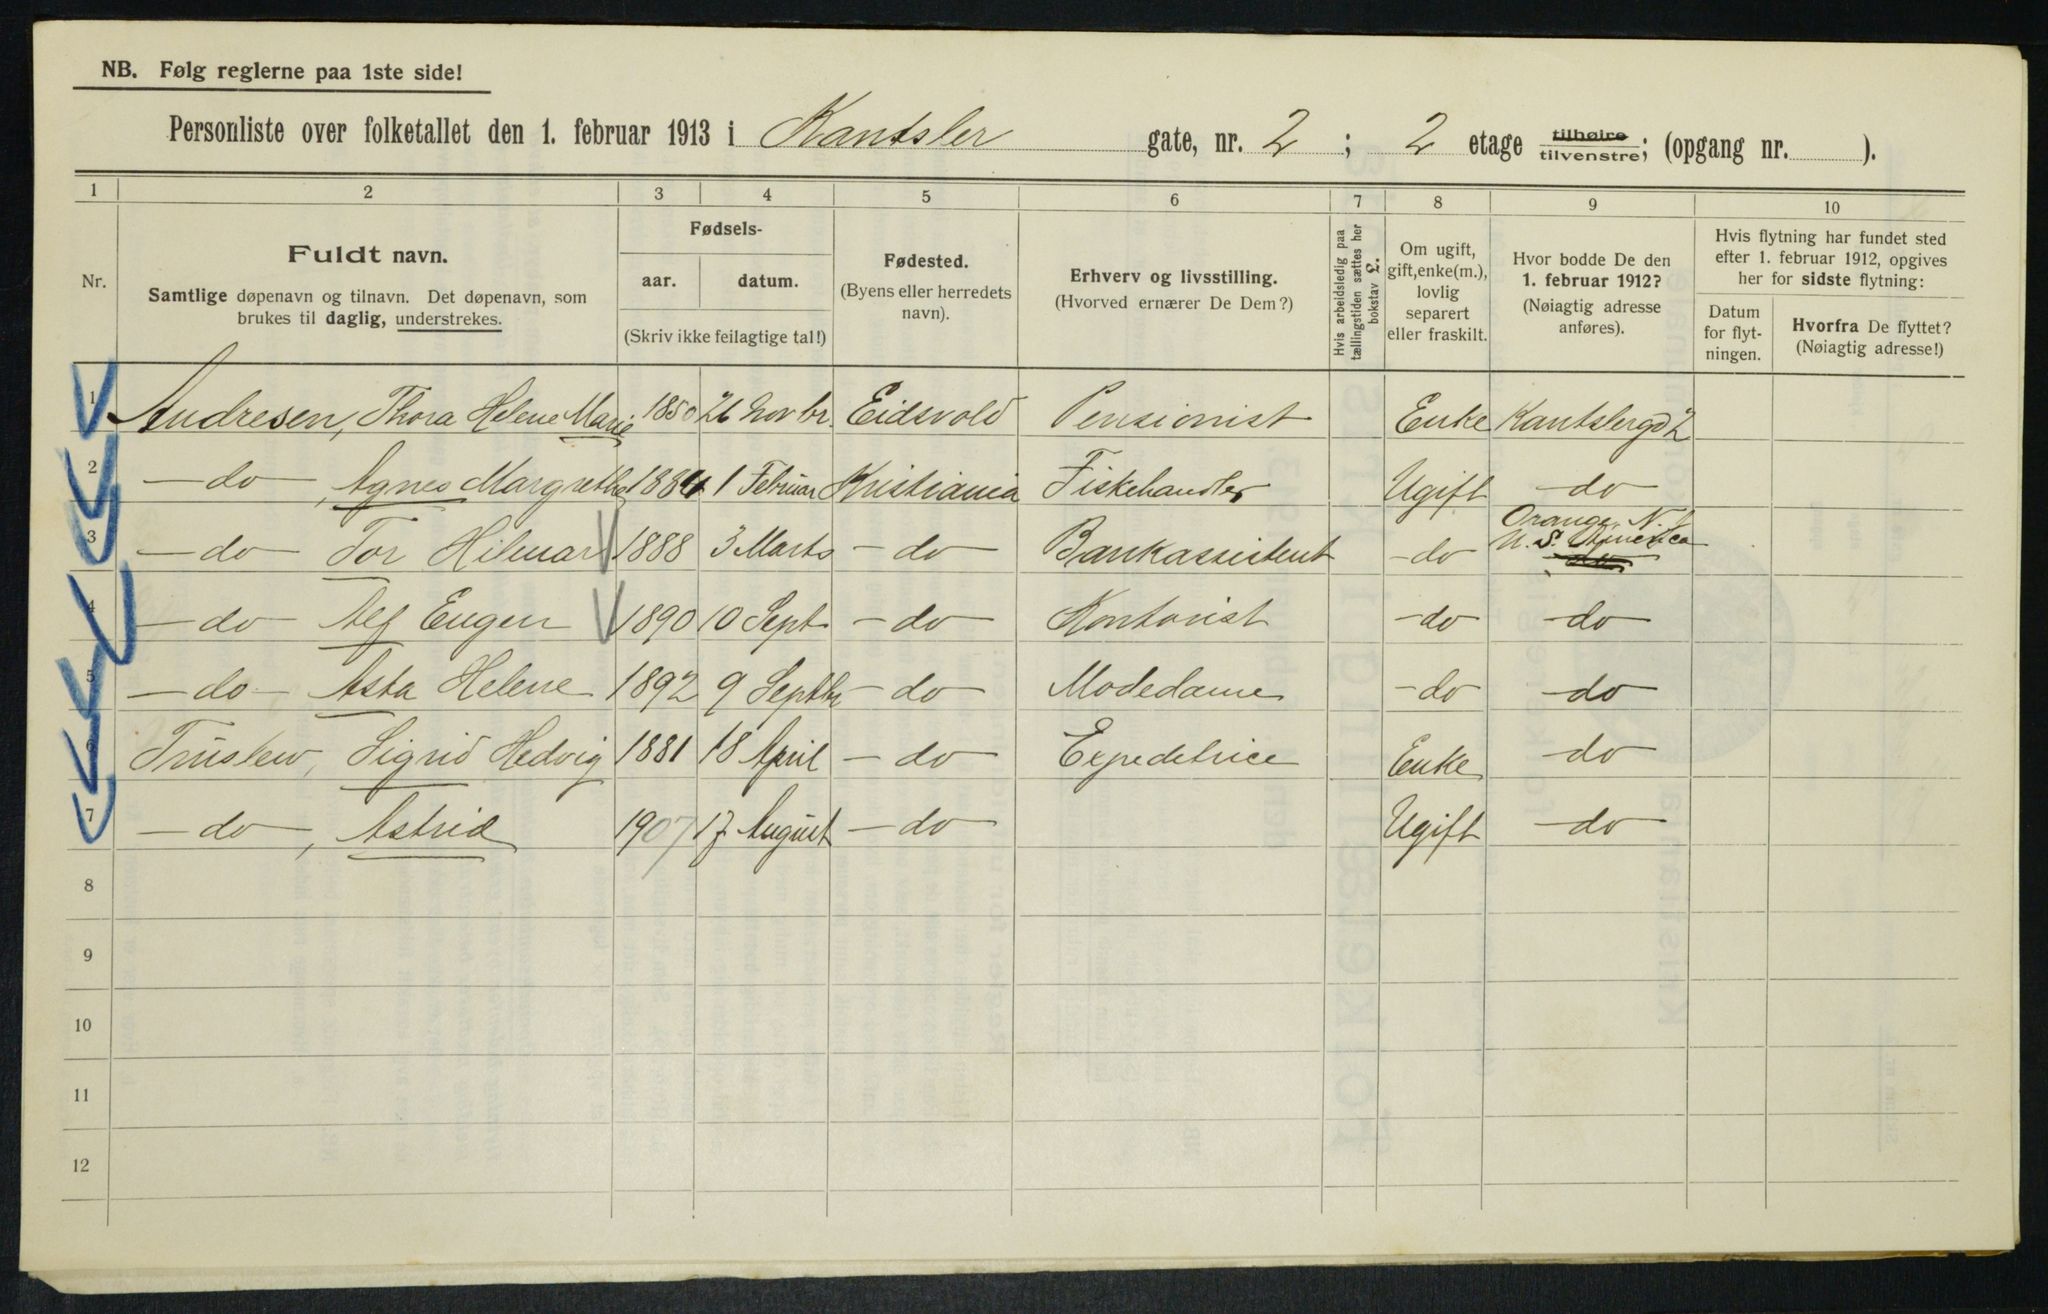 NB. Følg reglerne paa 1ste side!
Personliste over folketallet den 1. februar 1913 i Kantsler gate, nr. 2 ; 2 etage tilhøire / tilvenstre; (opgang nr. ).
1 2 3 4 5 6 7 8 9 10
Nr.
Fuldt navn.
Samtlige døpenavn og tilnavn. Det døpenavn, som
brukes til daglig, understrekes.
Fødsels-
aar. datum.
(Skriv ikke feilagtige tal!)
Fødested.
(Byens eller herredets
navn).
Erhverv og livsstilling.
(Hvorved ernærer De Dem?)
Hvis arbeidsledig paa
tællingstiden sættes her
bokstav £.
Om ugift,
gift, enke(m.),
lovlig
separert
eller fraskilt.
Hvor bodde De den
1. februar 1912?
(Nøiagtig adresse
anføres).
Hvis flytning har fundet sted
efter 1. februar 1912, opgives
her for sidste flytning:
Datum
for flyt-
ningen.
Hvorfra De flyttet?
(Nøiagtig adresse!)
1 Andresen, Thora Helene Marie 1850 26 Novbr. Eidsvold Pensionist Enke Kantslergd 2
2 — do — , Agnes Margrethe 1884 1 Februar Kristiania Fiskehandler Ugift — do —
3 — do — Tor Hilmar 1888 3 Marts — do — Bankassistent — do Orange, N. J.
U. S. America
4 — do — Alf Eugen 1890 10 Sept — do — Kontorist — do — do —
5 — do — Asta Helene 1892 9 Septbr — do — Modedame — do — do —
6 Truslew, Sigrid Hedvig 1881 18 April — do — Expeditrice Enke — do —
7 — do — , Astrid 1907 17 August — do — Ugift — do —
8
9
10
11
12